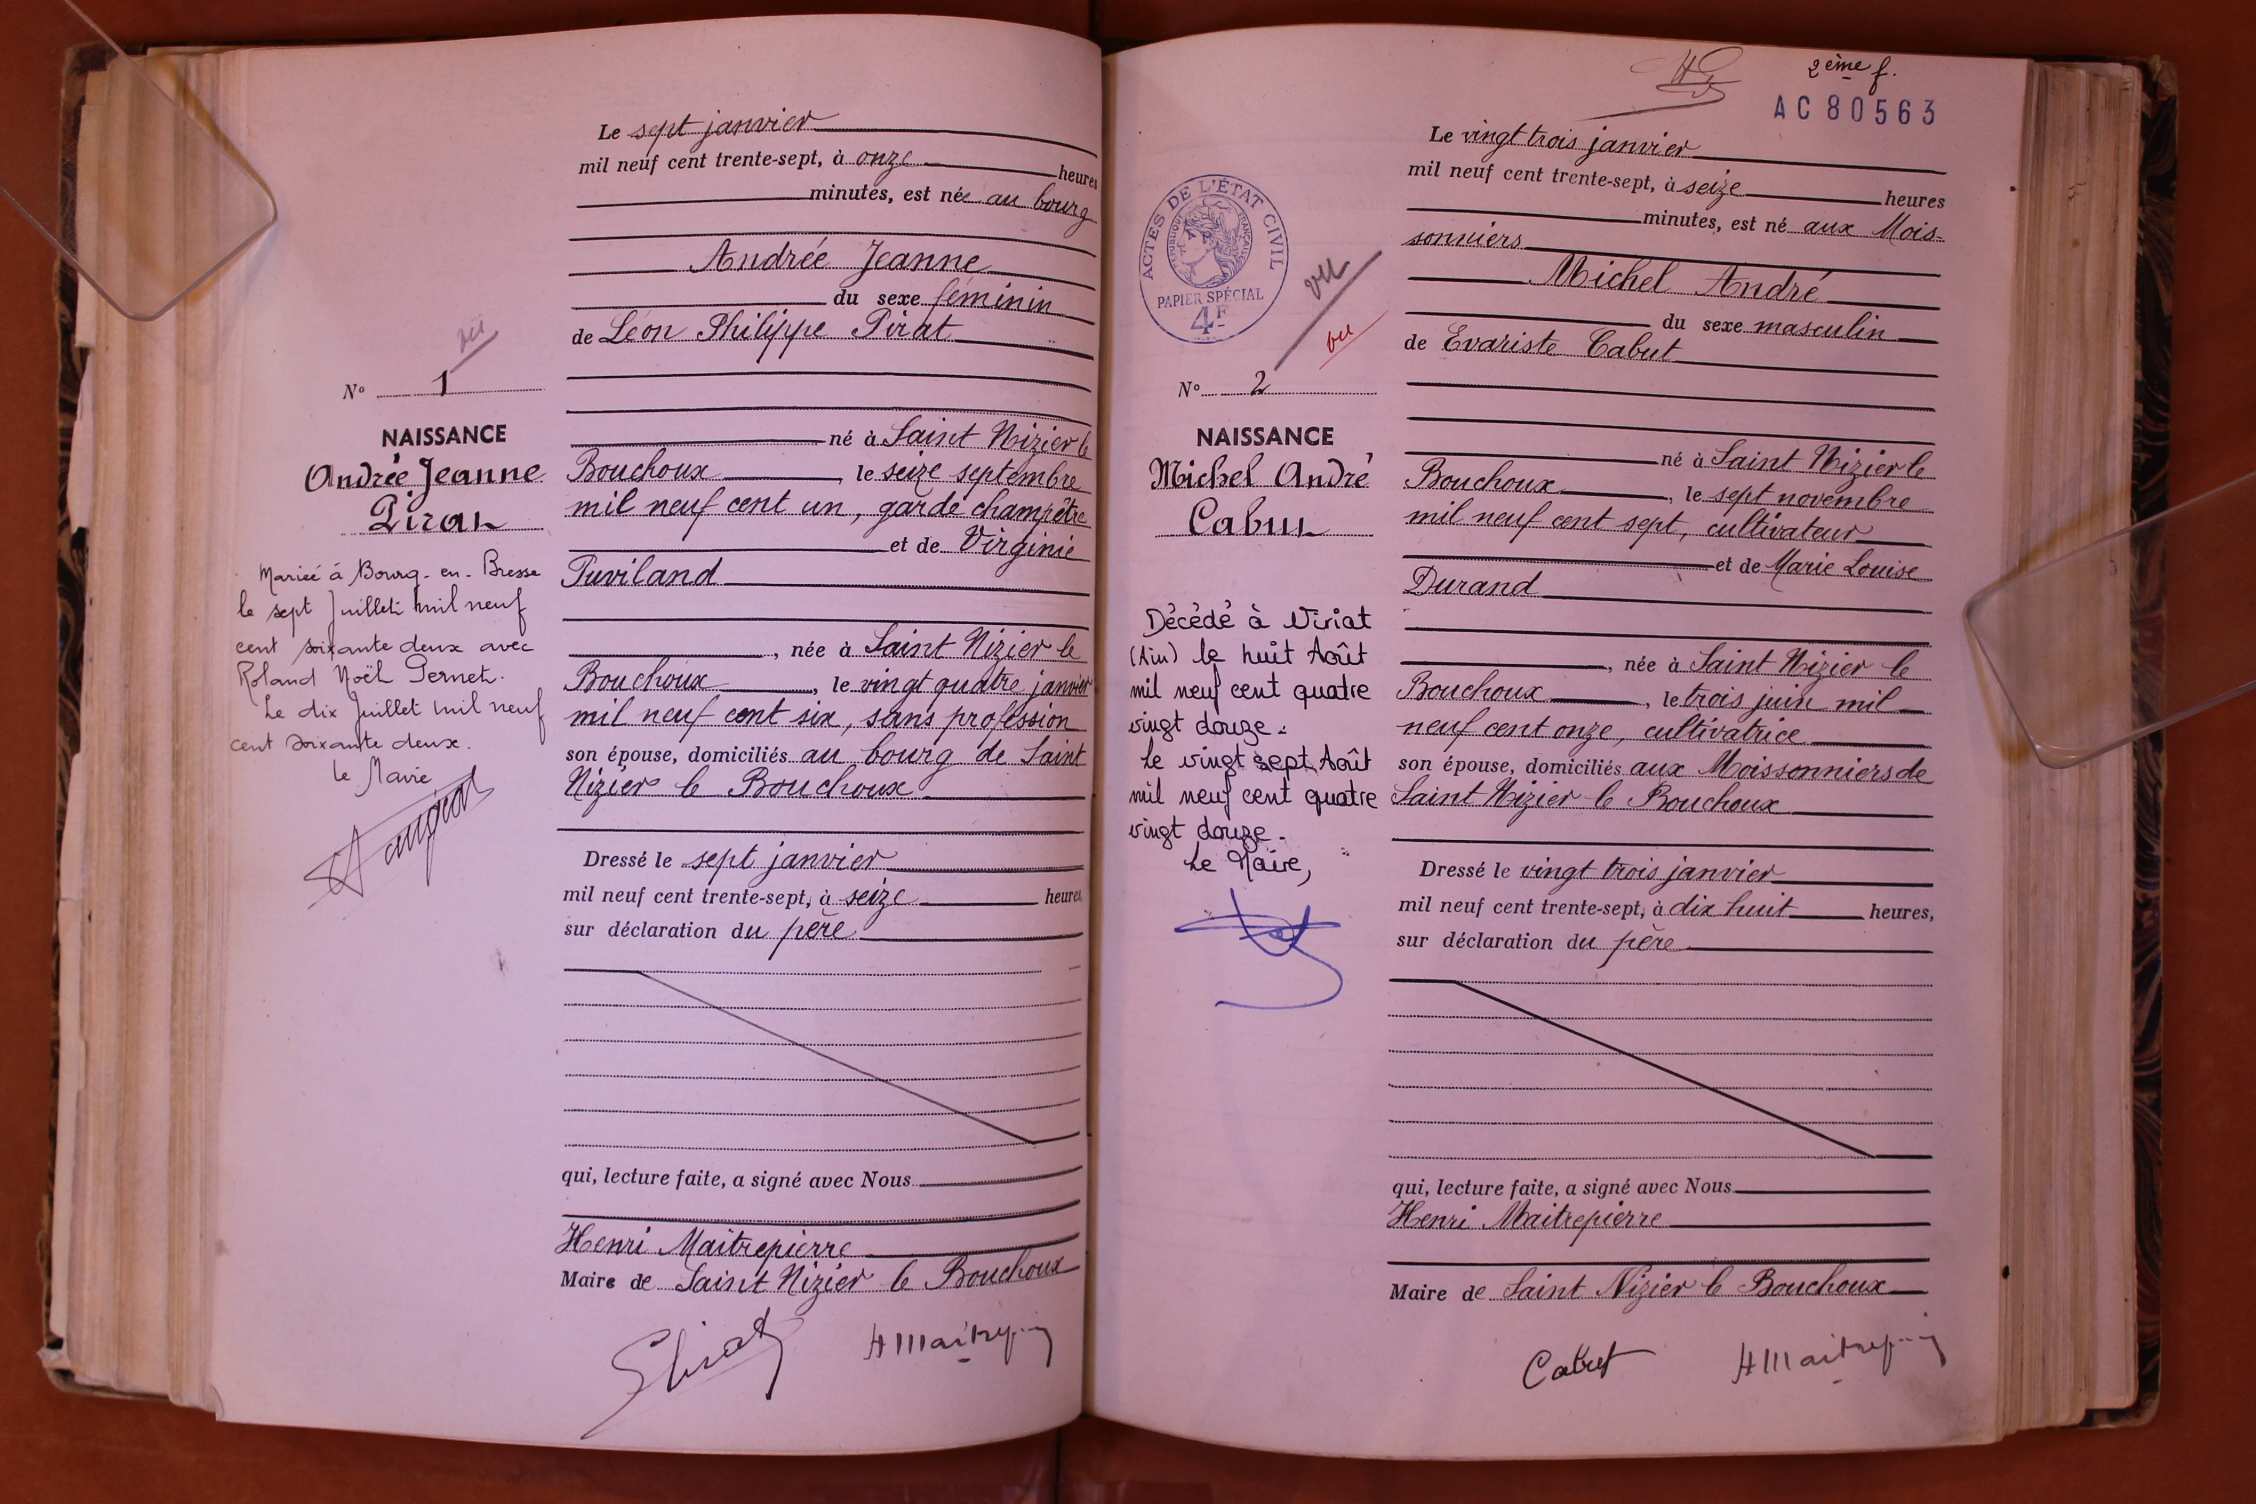 Le sept janvier
mil neuf cent trente-sept, à onze heures
minutes, est née au bourg
Andrée Jeanne
du sexe féminin
de Léon Philippe Pirat
vu
N° 1
NAISSANCE
Andrée Jeanne
Pirat
né à Saint Nizier le
Bouchoux, le seize septembre
mil neuf cent un, garde champêtre
et de Virginie
Puviland
Mariée à Bourg-en-Bresse
le sept Juillet mil neuf
cent soixante deux avec
Roland Noël Pernet.
Le dix Juillet mil neuf
cent soixante deux.
Le Mavie
, née à Saint Nizier le
Bouchoux, le vingt quatre janvier
mil neuf cent six, sans profession
son épouse, domiciliés au bourg de Saint
Nizier le Bouchoux
Dressé le sept janvier
mil neuf cent trente-sept, à seize heures
sur déclaration du père
qui, lecture faite, a signé avec Nous
Henri Maitrepierre
Maire de Saint Nizier le Bouchoux
2ème f.
AC80563
Le vingt trois janvier
mil neuf cent trente-sept, à seize heures
minutes, est né aux Mois-
sonniers
Michel André
du sexe masculin
de Evariste Cabut
ACTES DE L'ÉTAT CIVIL
RÉPUBLIQUE FRANÇAISE
PAPIER SPÉCIAL
4F
vu
vu
N° 2
NAISSANCE
Michel André
Cabut
né à Saint Nizier le
Bouchoux, le sept novembre
mil neuf cent sept, cultivateur
et de Marie Louise
Durand
Décédé à Viriat
(Ain) le huit Août
mil neuf cent quatre
vingt douze.
Le vingt sept Août
mil neuf cent quatre
vingt douze.
Le Maire,
, née à Saint Nizier le
Bouchoux, le trois juin mil
neuf cent onze, cultivatrice
son épouse, domiciliés aux Moissonniers de
Saint Nizier le Bouchoux
Dressé le vingt trois janvier
mil neuf cent trente-sept, à dix huit heures,
sur déclaration du père
qui, lecture faite, a signé avec Nous
Henri Maitrepierre
Maire de Saint Nizier le Bouchoux
Cabut